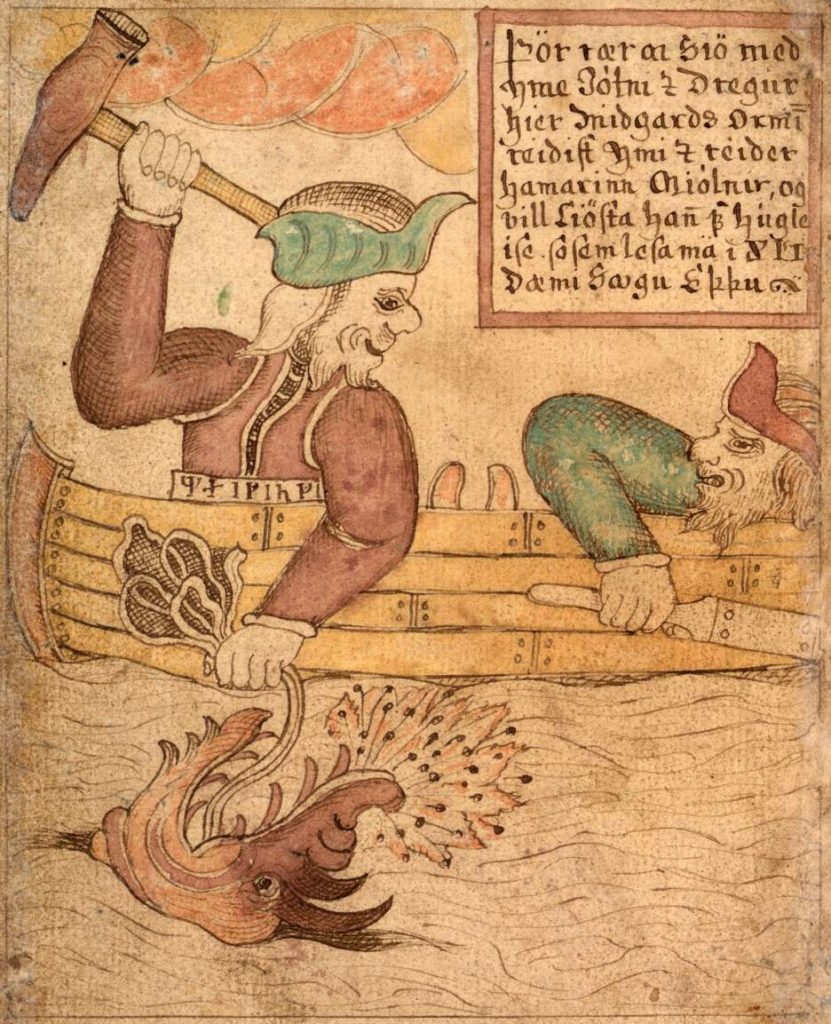 Þör rær ai Siö med
Yme Jötni ⁊ Dregur
hier Midgards Ormī
reidist Ymi ⁊ reider
hamarinn Miölnir, og
vill Liösta hañ hügle
ise. so sem lesa mä i XLI
Dæmi Sægu Eþþu